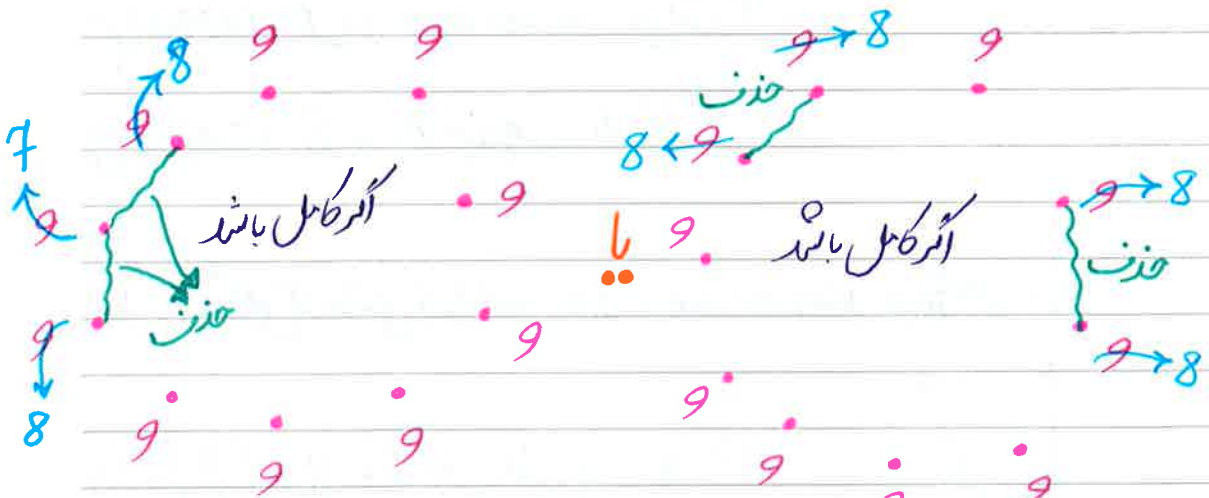 9 9 9 → 8 9
8 حذف
9 8 ← 9
7
9 اگر کامل باشد 9 یا 9 اگر کامل باشد 9 → 8
حذف
9 حذف 9 9 → 8
8 9 9 9
9 9 9 9